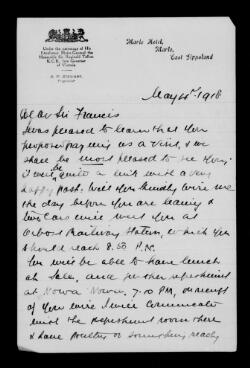 Under the patronage of His
Excellency Major-General
the Honorable Sir Reginald Talbot
K.C.B., late Governor
of Victoria
Proprietor
Marlo Hotel,
Marlo,
East Gippsland
May 4th 1918
Dear Sir Francis
I was pleased to learn that you
purpose paying us a visit, & we
shall be most pleased to see you;
it will be quite a link with a very
happy past. Will you kindly wire me
the day before you are leaving &
two cars will meet you at
Orbost Railway Station, which you
should reach 8.50 P.M.
You will be able to have lunch
at Sale, and further refreshment
at Nowa Nowa, 7.10 PM, on receipt
of your wire I will communicate
with the refreshment room there
& have poultry or something ready